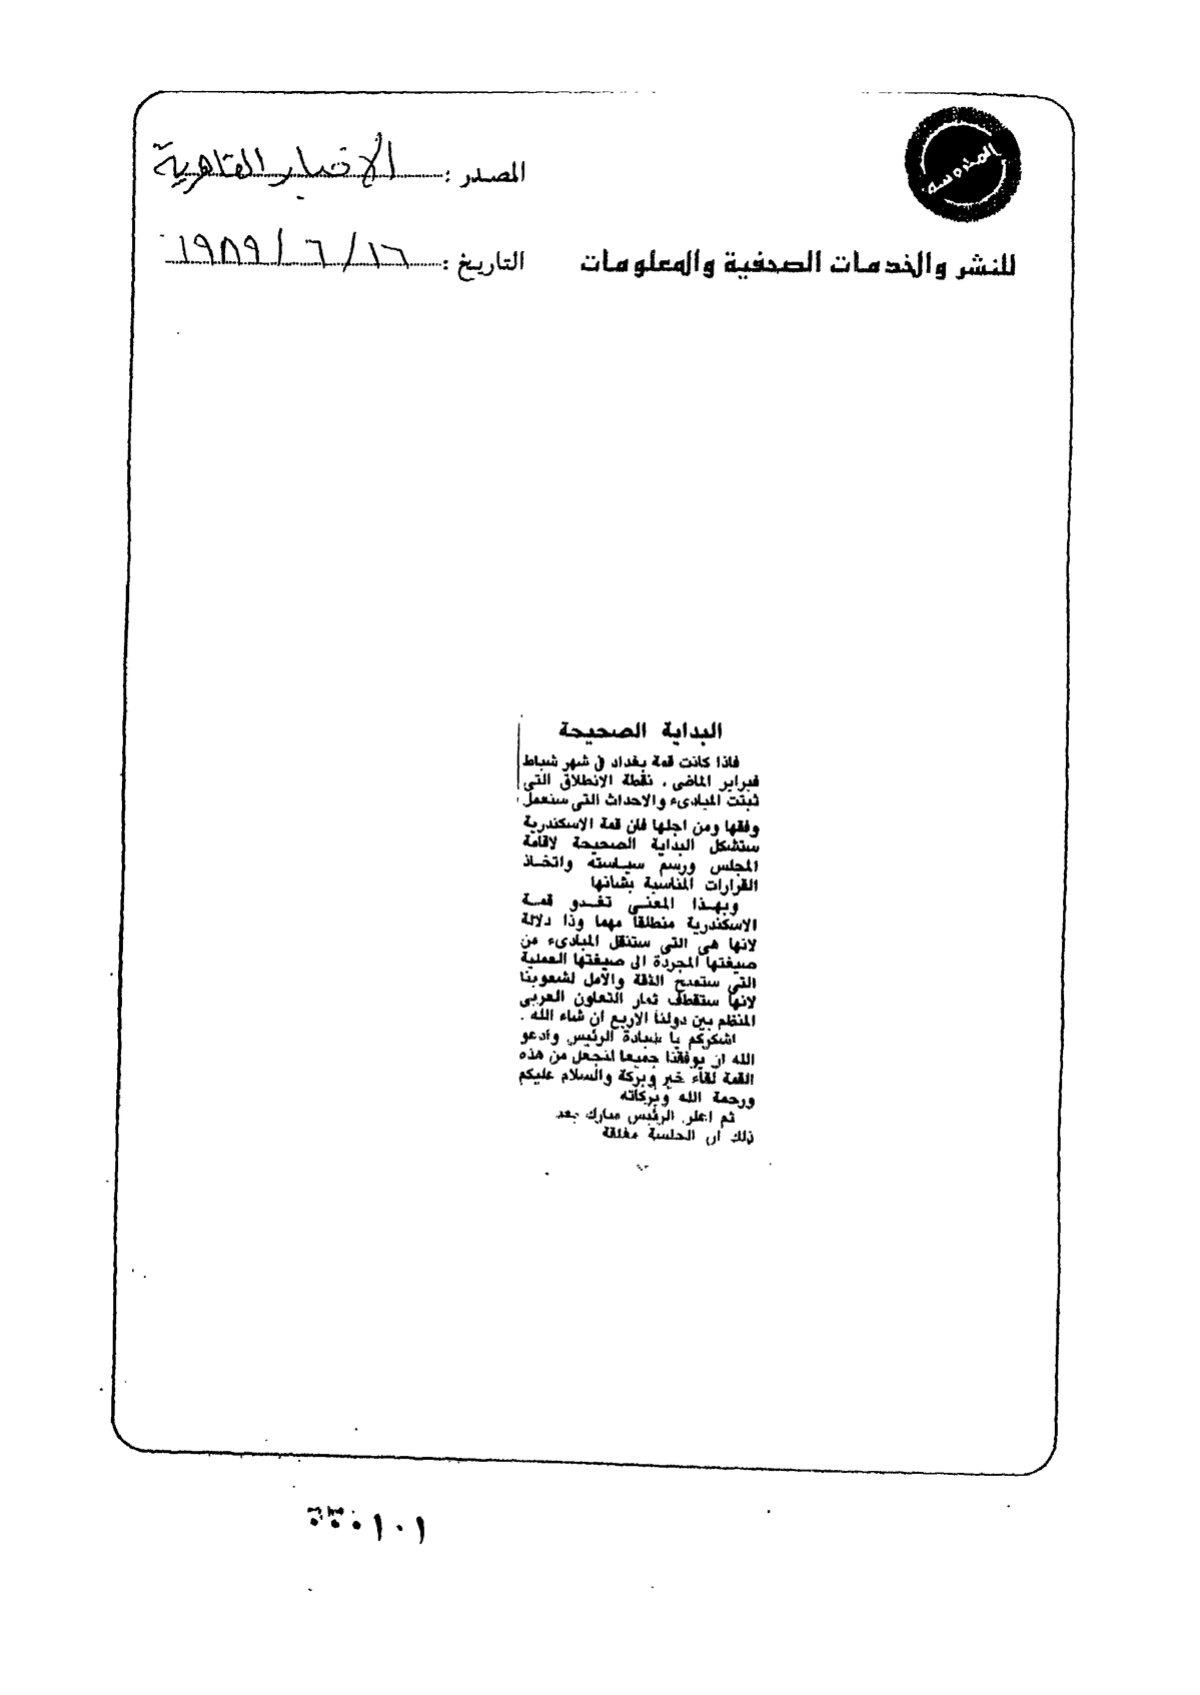 المحروسة
المصدر : الاخبار القاهرية
للنشر والخدمات الصحفية والمعلومات
التاريخ : ١٦ / ٦ / ١٩٨٩
البداية الصحيحة
فاذا كانت قمة بغداد في شهر شباط
فبراير الماضى ، نقطة الانطلاق التى
ثبتت المبادىء والاحداث التى سنعمل
وفقها ومن اجلها فان قمة الاسكندرية
ستشكل البداية الصحيحة لاقامة
المجلس ورسم سياسته واتخاذ
القرارات المناسبة بشانها
وبهذا المعنى تغدو قمة
الاسكندرية منطلقا مهما وذا دلالة
لانها هى التى ستنقل المبادىء من
صيغتها المجردة الى صيغتها العملية
التى ستمنح الثقة والأمل لشعوبنا
لانها ستقطف ثمار التعاون العربى
المنظم بين دولنا الاربع ان شاء الله .
اشكركم يا سيادة الرئيس وادعو
الله ان يوفقنا جميعا لنجعل من هذه
القمة لقاء خير وبركة والسلام عليكم
ورحمة الله وبركاته
ثم اعلن الرئيس مبارك بعد
ذلك ان الجلسة مغلقة